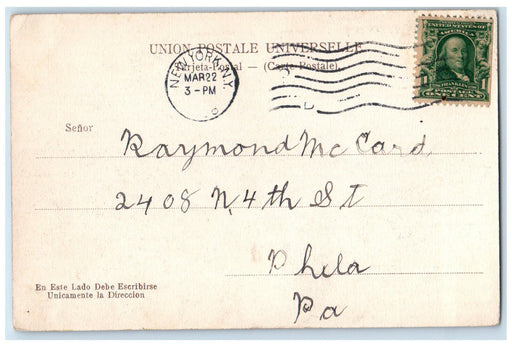 UNION POSTALE UNIVERSELLE
Tarjeta-Postal — (Carte Postale)
NEW YORK, N.Y.
MAR 22
3-PM
UNITED STATES OF AMERICA
1 1
FRANKLIN
ONE CENT
Señor
Raymond Mc Card
2408 N, 4th St
Phila
Pa
En Este Lado Debe Escribirse
Unicamente la Direccion